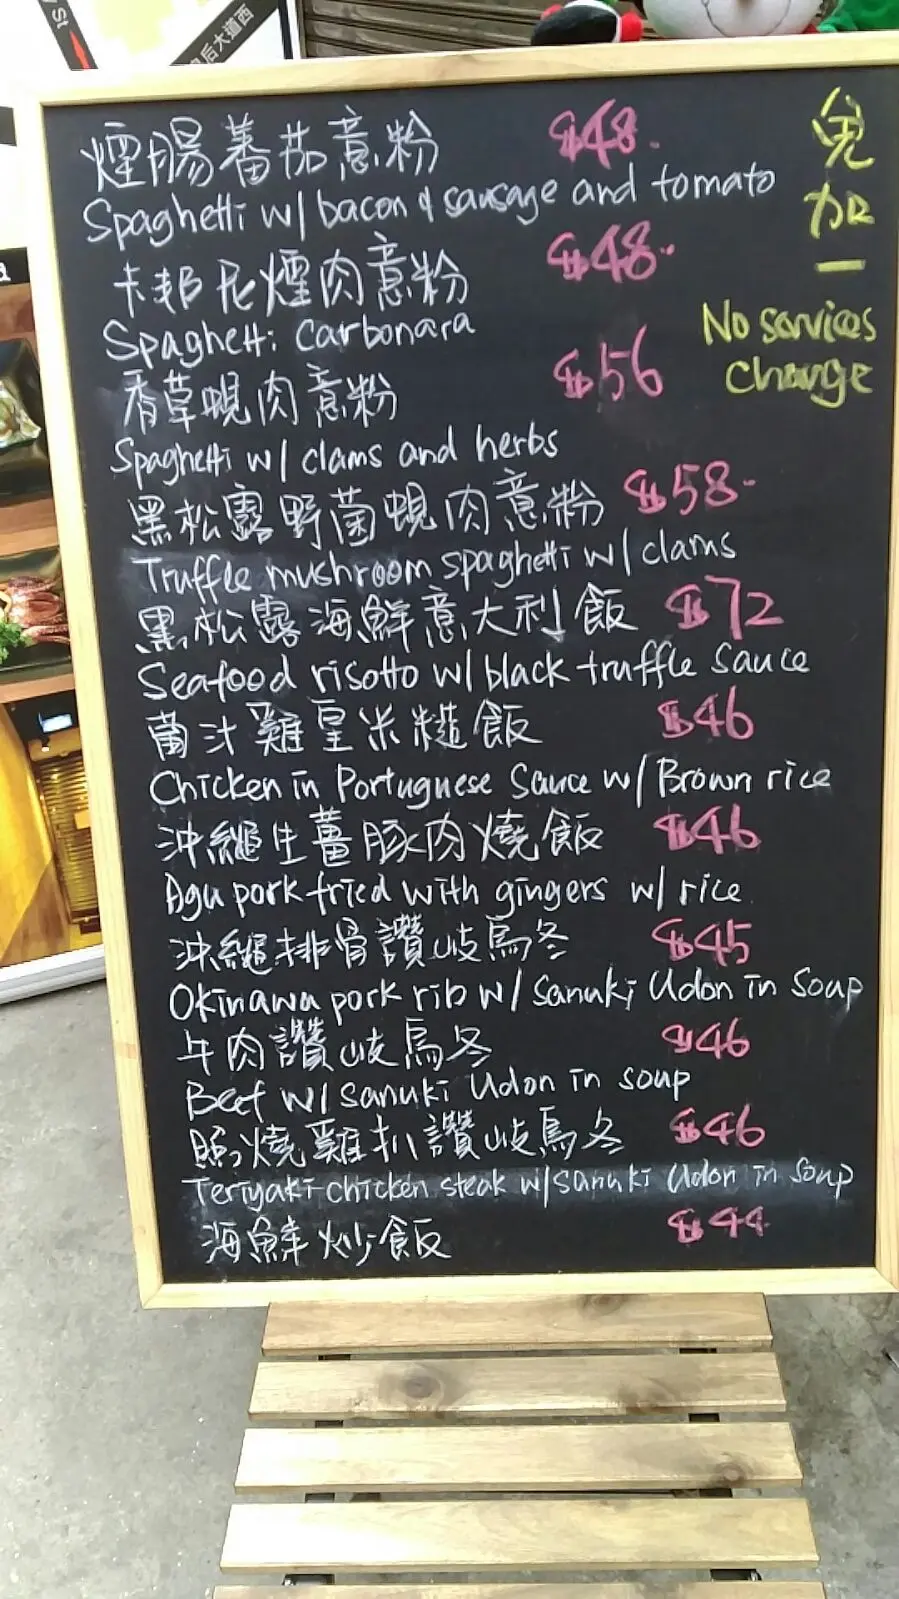 St
皇后大道西
煙腸蕃茄意粉 $48.
Spaghetti w/ bacon & sausage and tomato
卡邦尼煙肉意粉 $48.
Spaghetti Carbonara
香草蜆肉意粉 $56
Spaghetti w/ clams and herbs
黑松露野菌蜆肉意粉 $58.
Truffle mushroom spaghetti w/ clams
黑松露海鮮意大利飯 $72
Seafood risotto w/ black truffle sauce
葡汁雞皇米糙飯 $46
Chicken in Portuguese Sauce w/ Brown rice
沖繩生薑豚肉燒飯 $46
Agu pork fried with gingers w/ rice
沖繩排骨讚岐烏冬 $45
Okinawa pork rib w/ sanuki Udon in soup
牛肉讚岐烏冬 $46
Beef w/ sanuki Udon in soup
照燒雞扒讚岐烏冬 $46
Teriyaki chicken steak w/ sanuki Udon in soup
海鮮炒飯 $44
免
加
一
No services
charge